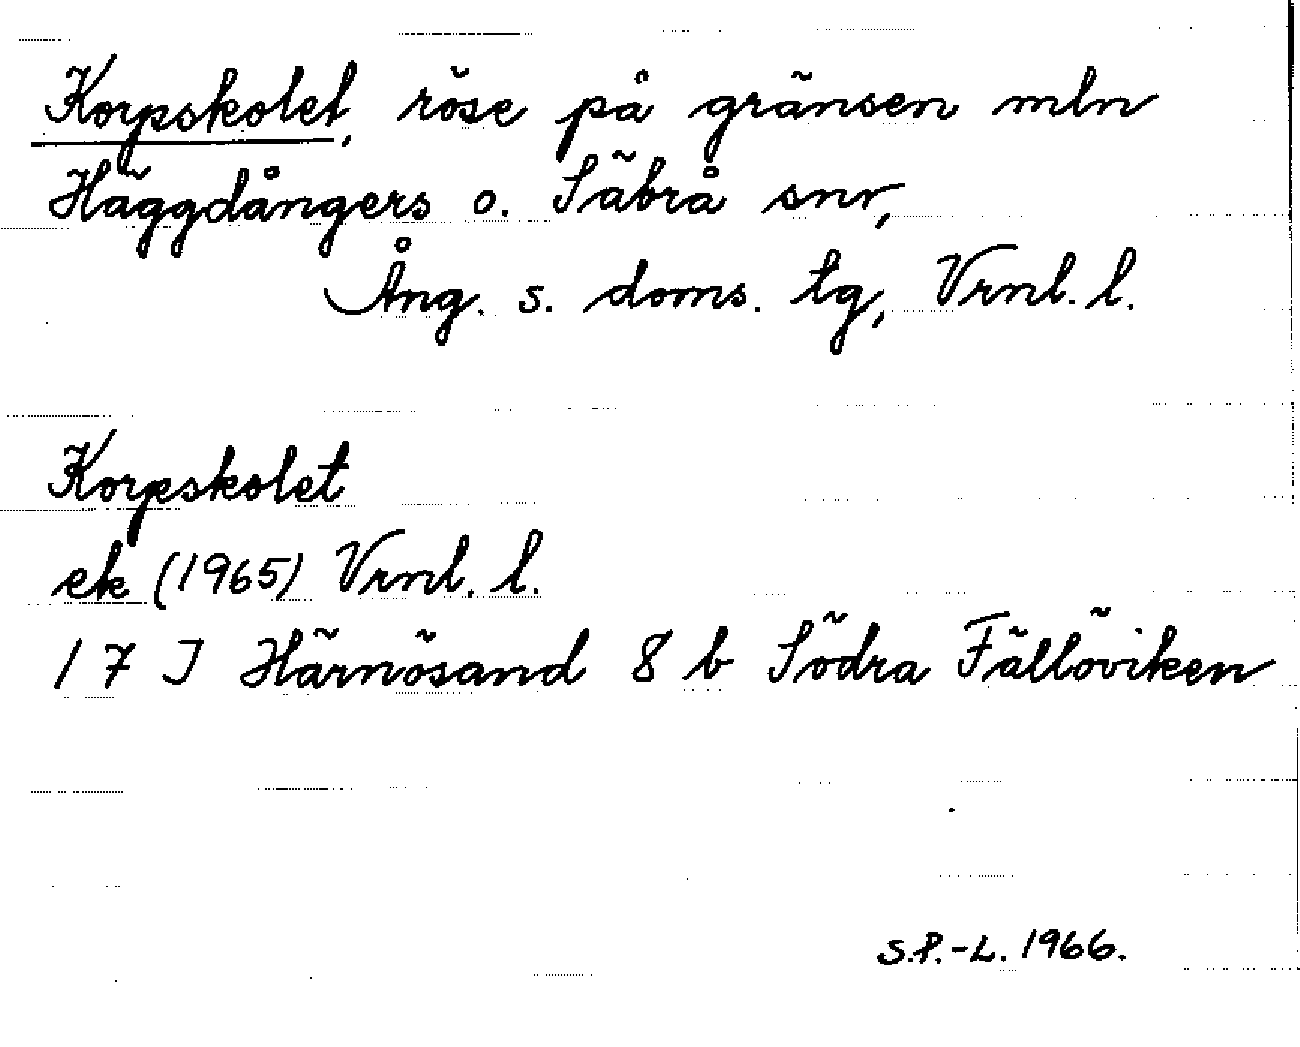 Korpskolet, röse på gränsen mln
Häggdångers o. Säbrå snr,
Ång. s. doms. tg, Vrnl. l.
Korpskolet
ek (1965) Vrnl. l.
17 I Härnösand 8 b Södra Fällöviken
S.P.-L. 1966.